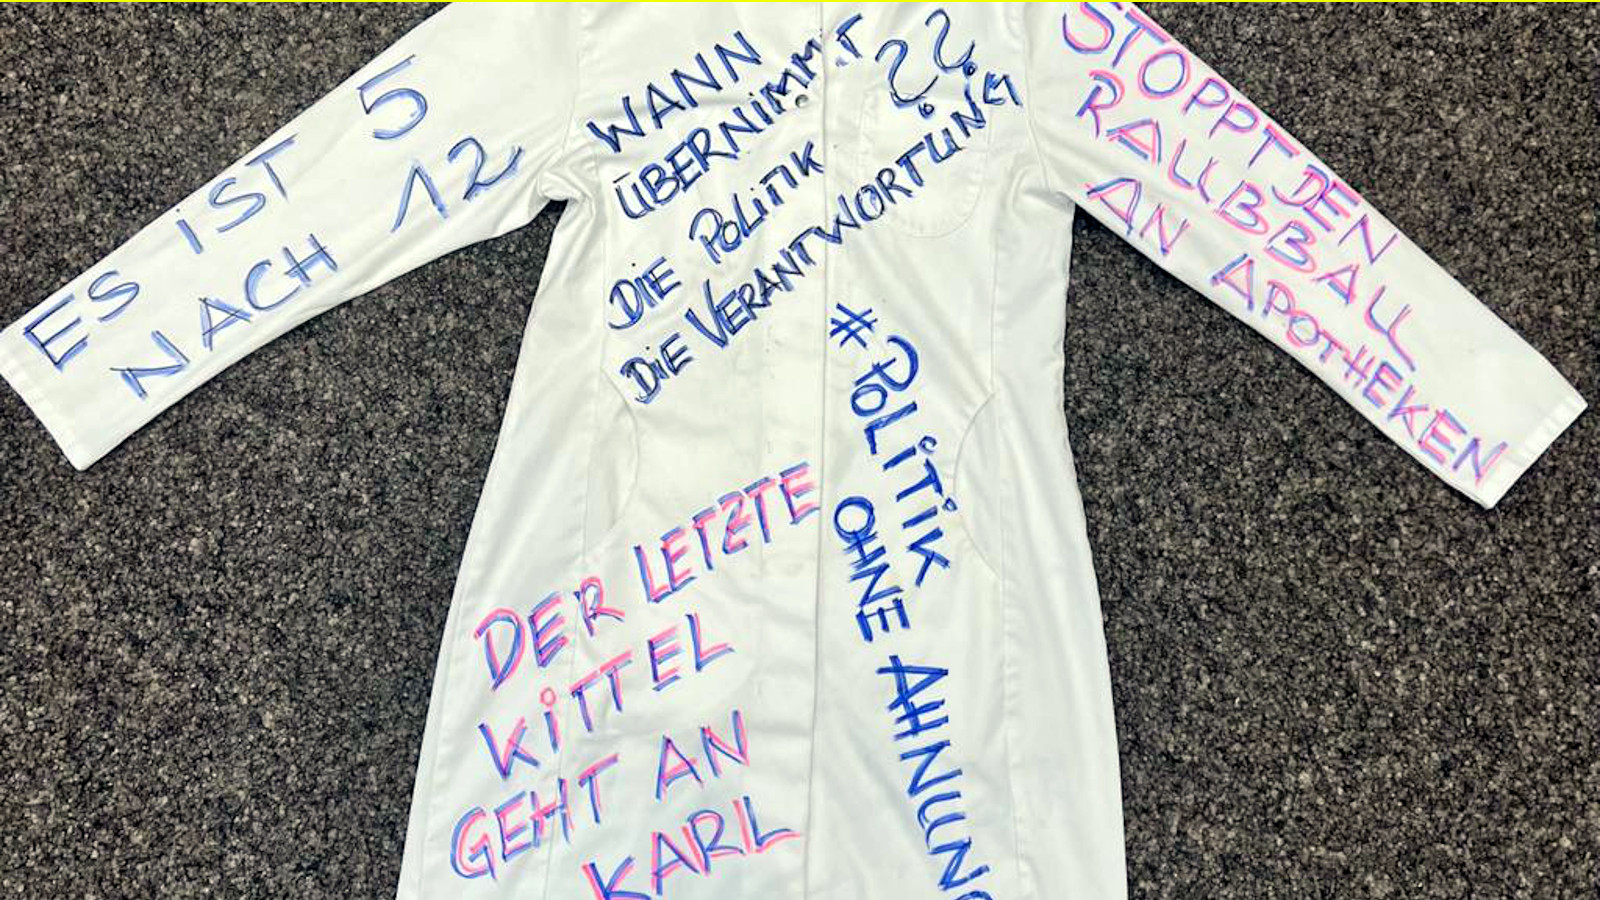 ES IST 5
NACH 12
WANN
ÜBERNIMMT ??
DIE POLITIK
DIE VERANTWORTUNG
STOPPT DEN
RAUBBAU
AN APOTHEKEN
#POLITIK
OHNE AHNUNG
DER LETZTE
KITTEL
GEHT AN
KARL